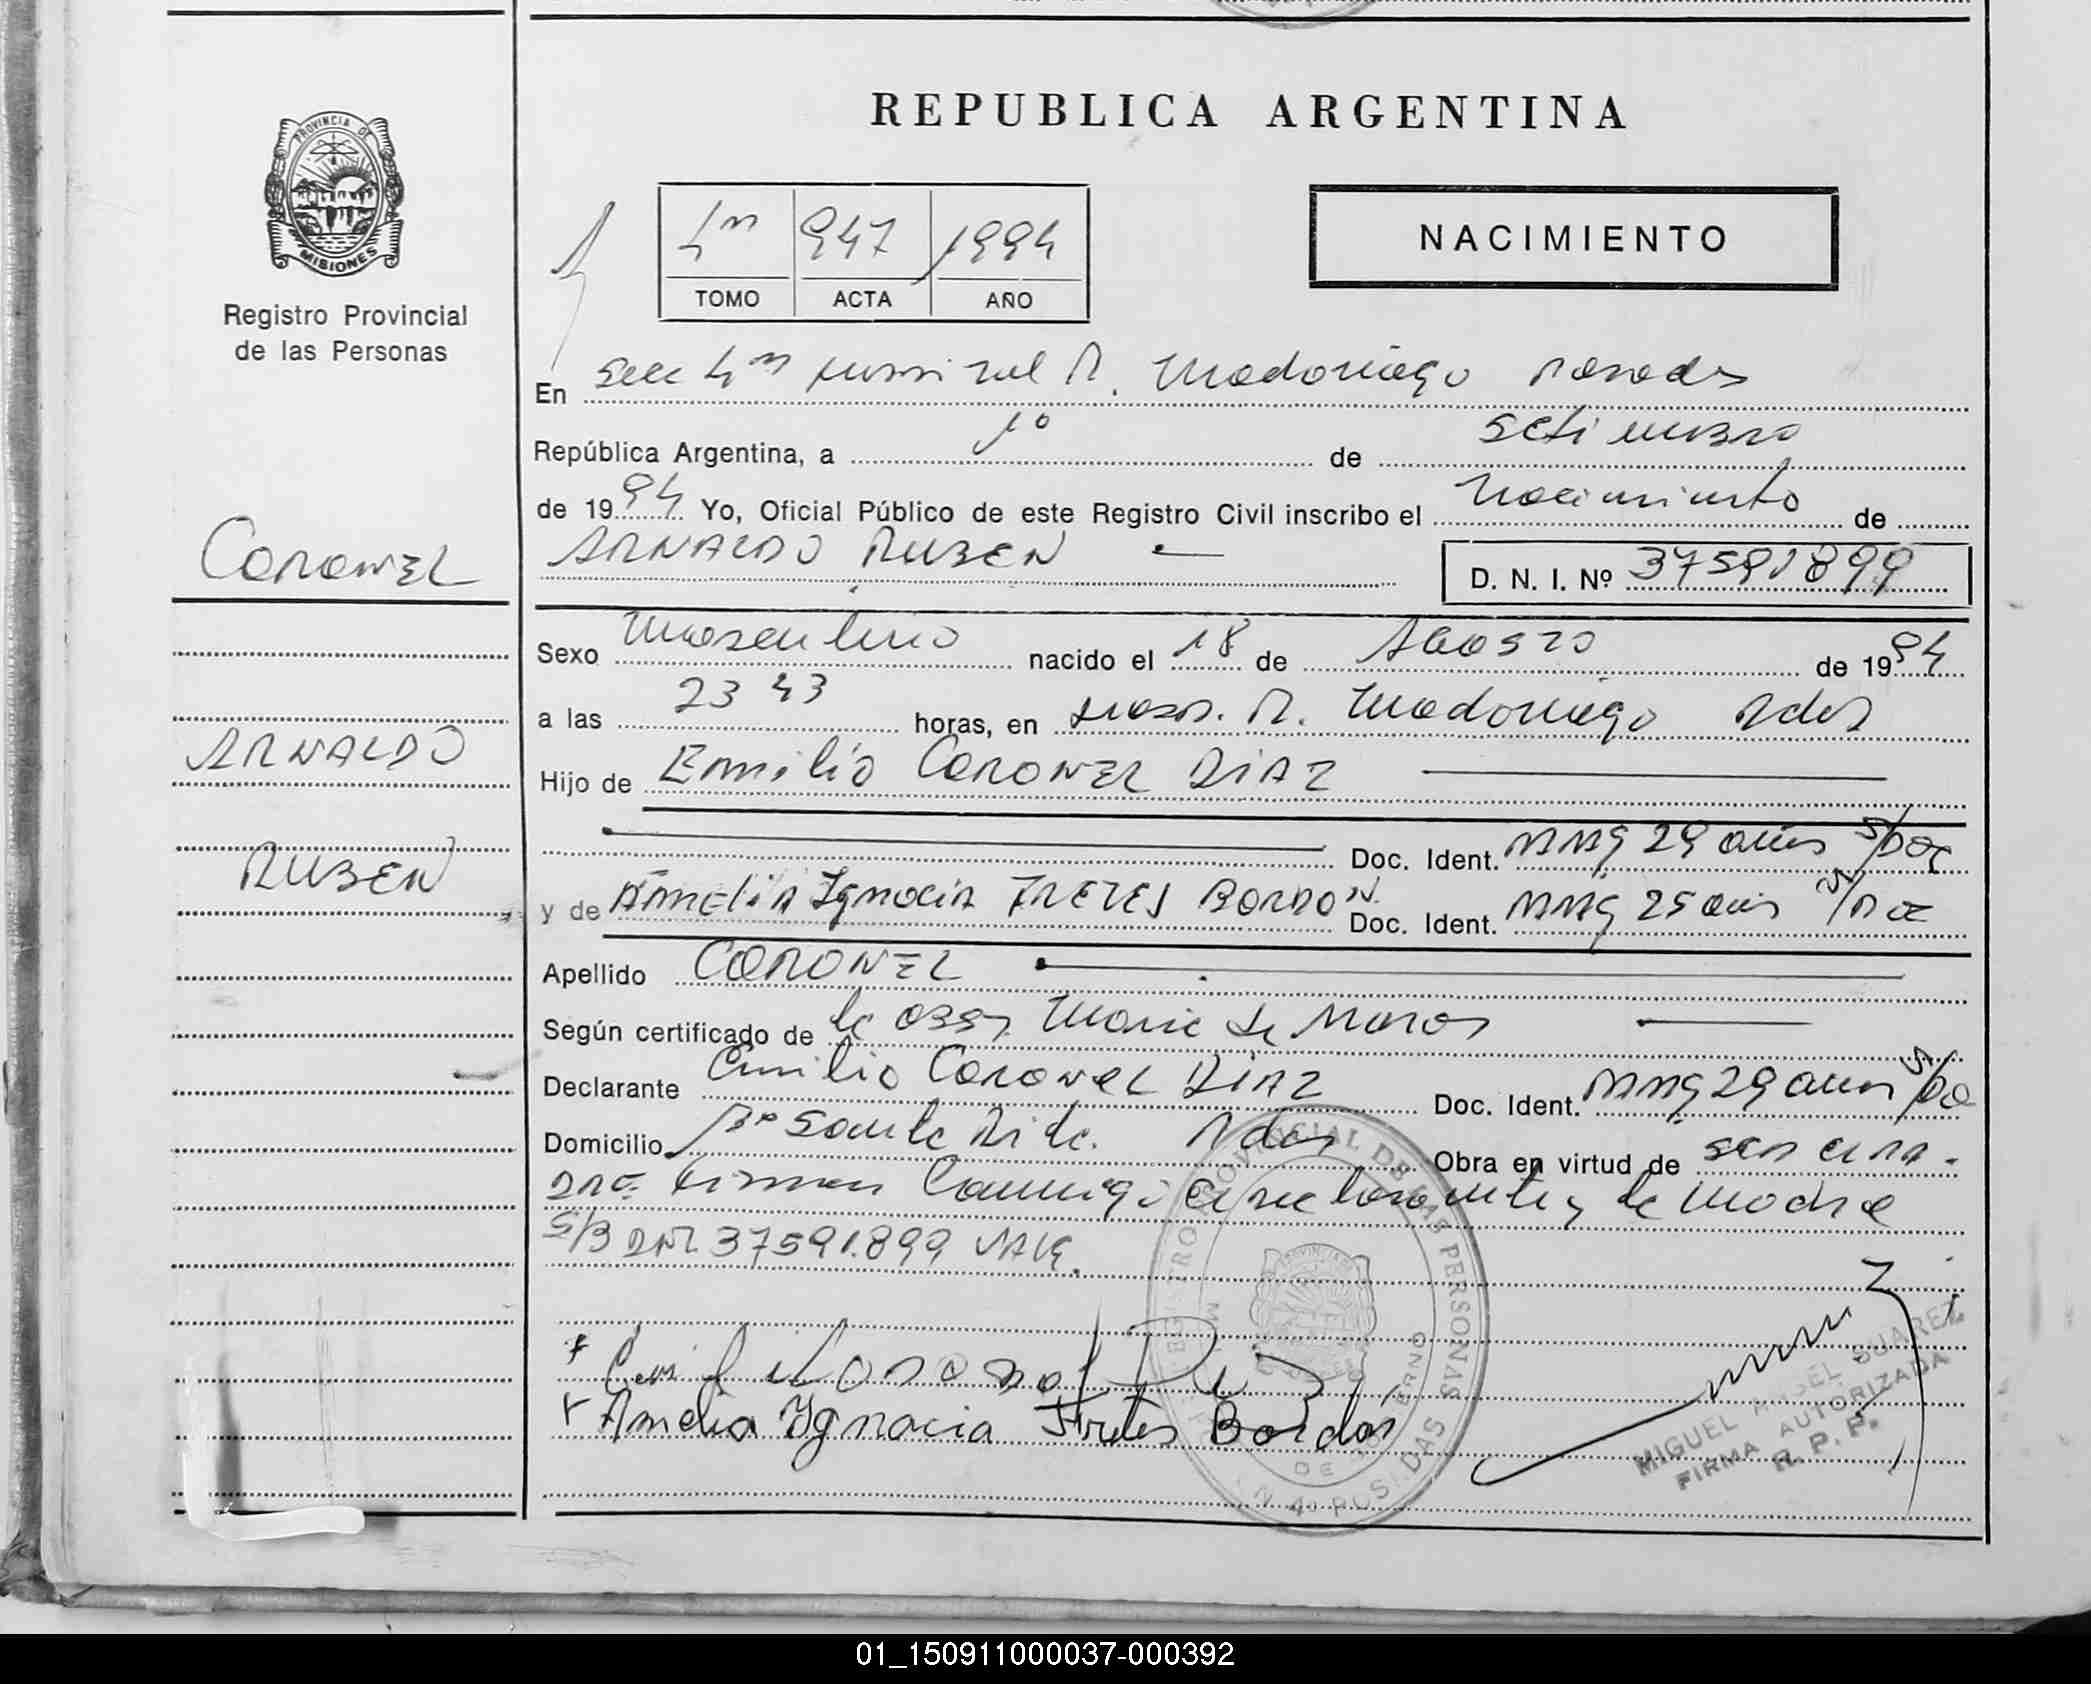 REPUBLICA ARGENTINA
PROVINCIA DE
MISIONES
Registro Provincial
de las Personas
4m 947 1994
TOMO ACTA AÑO
NACIMIENTO
En Secc 4m R. Madariaga Posadas
República Argentina, a 1º de Setiembre
de 1994 Yo, Oficial Público de este Registro Civil inscribo el Nacimiento de
ARNALDO RUBEN
D. N. I. Nº 37591899
CORONEL
ARNALDO
RUBEN
Sexo Masculino nacido el 18 de AGOSTO de 1994
a las 23 43 horas, en Hosp. R. Madariaga Pdas
Hijo de Emilio CORONEL DIAZ
Doc. Ident. 29 años S/Doc
y de AMELIA Ignacia FRETES BORDON Doc. Ident. 25 años S/Doc
Apellido CORONEL
Según certificado de la Obst. Maria de
Declarante Emilio CORONEL DIAZ Doc. Ident. 29 años S/Do
Domicilio Bº Santa Rita. Pdas Obra en virtud de ser el pa-
dre. Firman Conmigo el declarante y la madre
S/B DNI. 37591.899
Emilio Coronel Diaz
Amelia Ignacia Fretes Bordon
REGISTRO PROVINCIAL DE LAS PERSONAS
PROVINCIA
N 4º POSADAS
MIGUEL ANGEL SUAREZ
FIRMA AUTORIZADA
R. P. P.
01_150911000037-000392